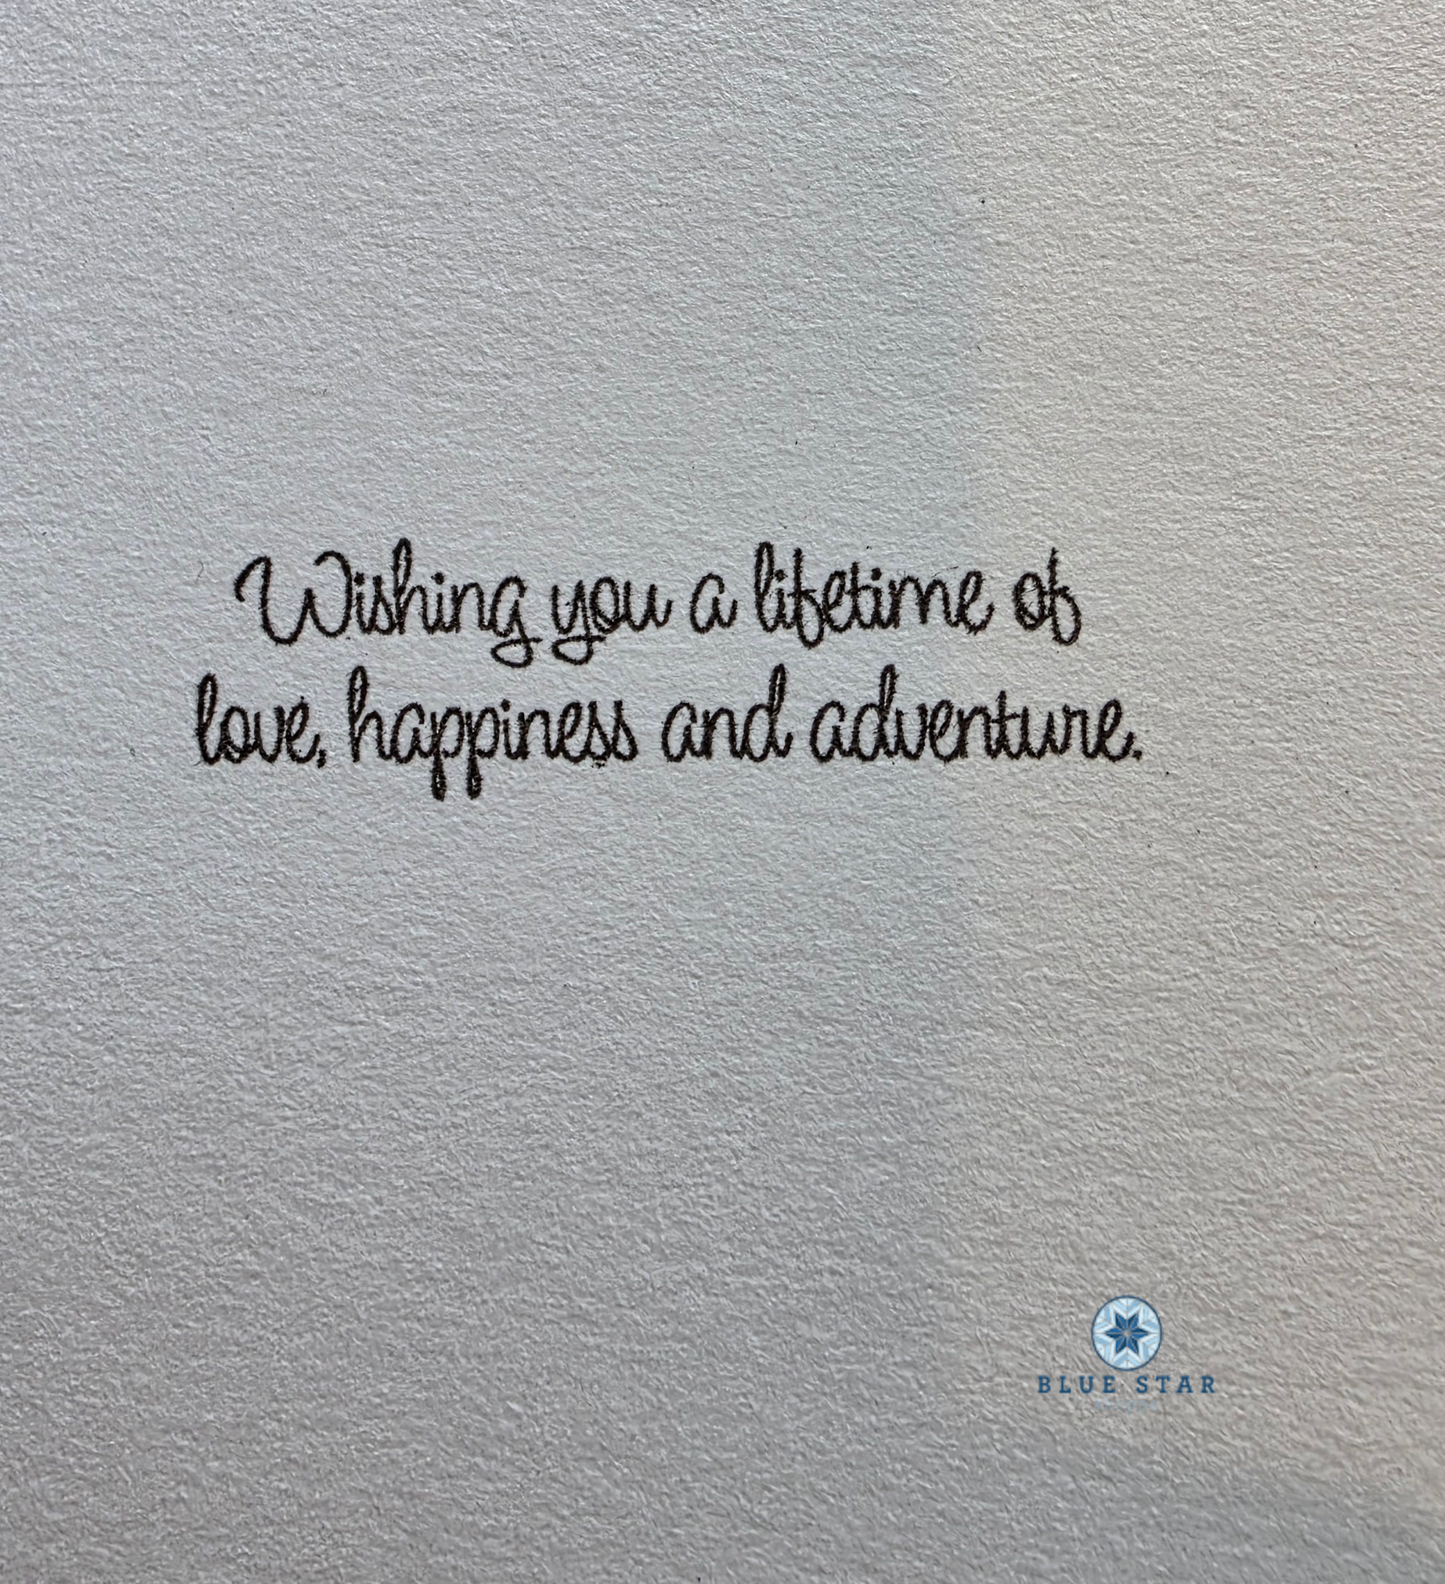 Wishing you a lifetime of
love, happiness and adventure.
BLUE STAR